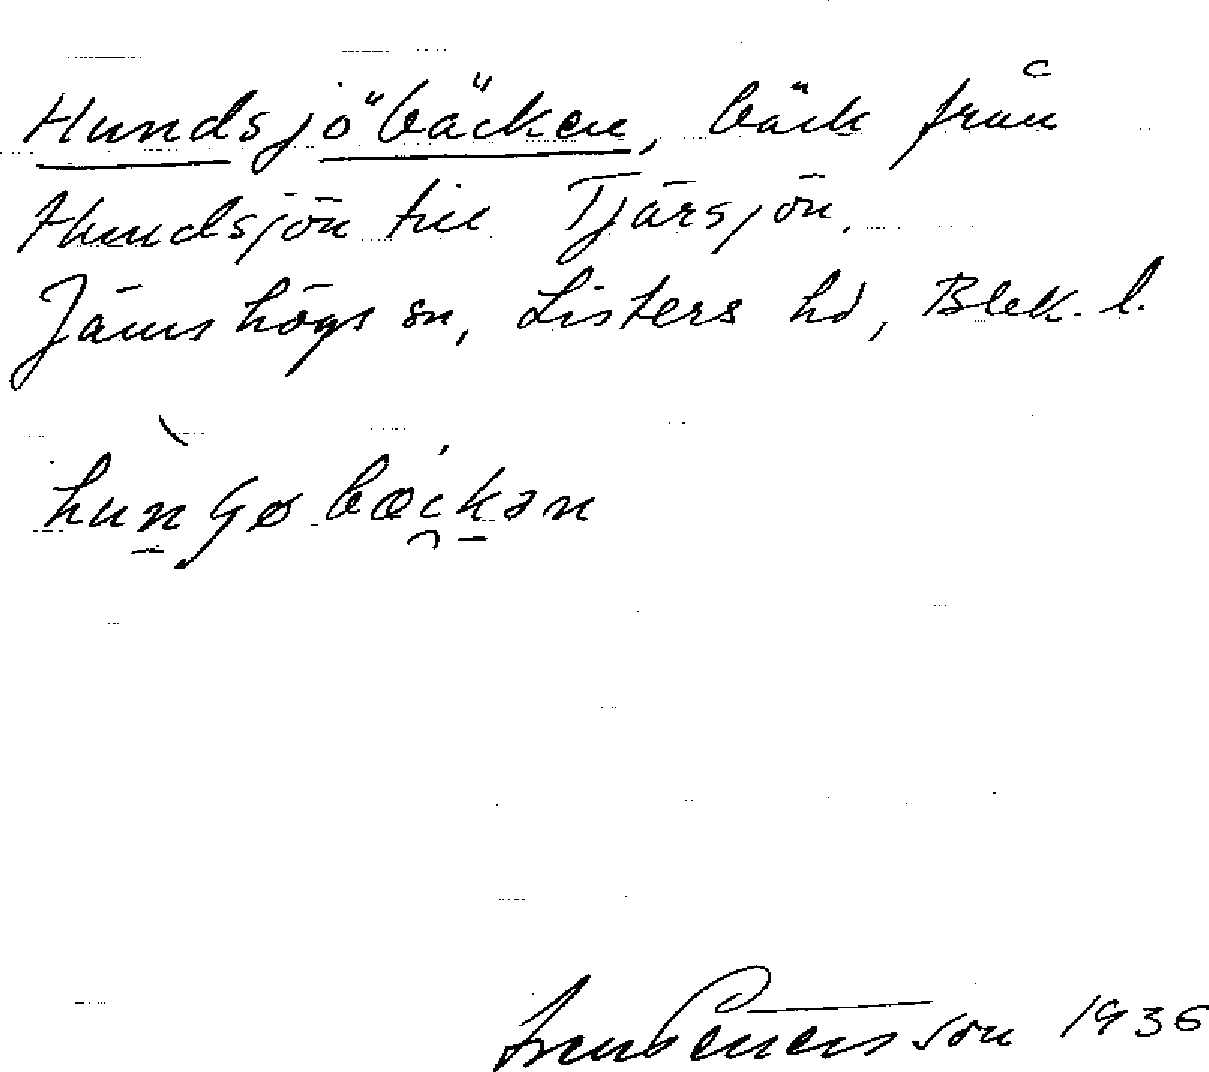 Hundsjöbäcken, bäck från
Hundsjön till Tjärsjön.
Jämshögs sn, Listers hd, Blek. l.
1936